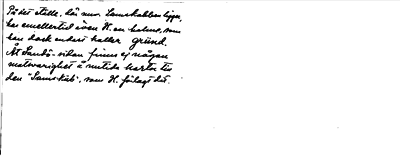 På det ställe, där nu Lamskubben ligger,
har emellertid även H. en holme, som
han dock endast kallar grund.
Åt Sandö-sidan finns ej någon
motsvarighet å nutida kartor till
den "Lamskub", som H. förlagt dit.